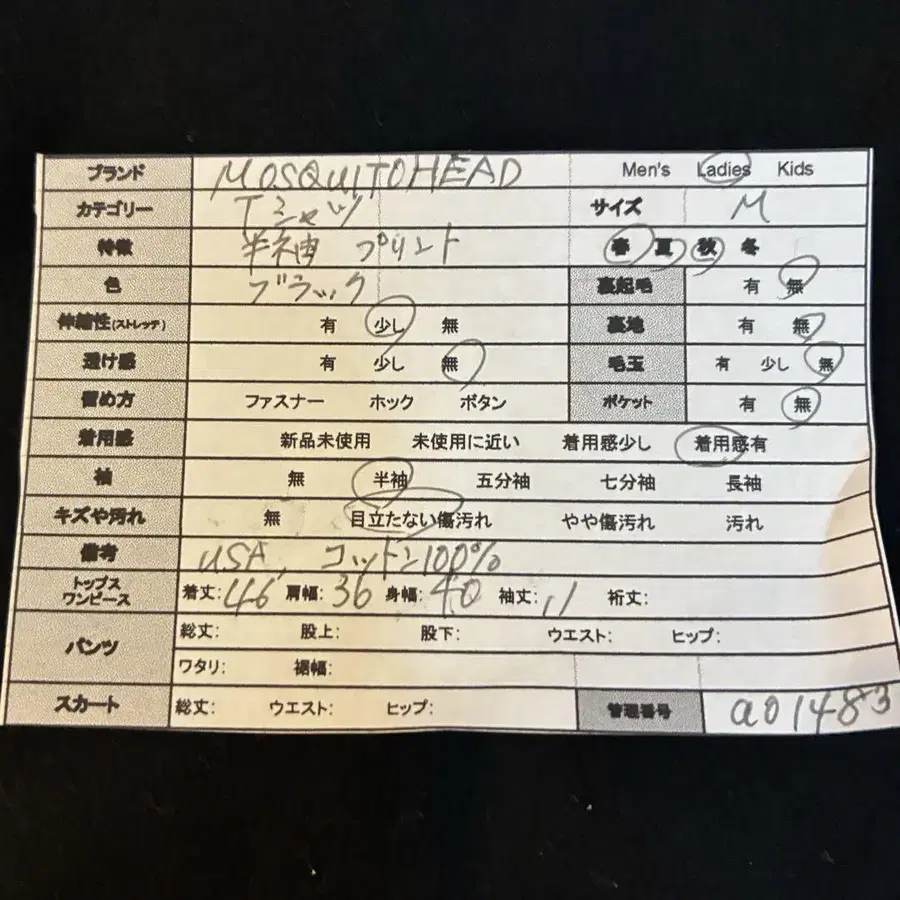 ブランド MOSQUITOHEAD Men's Ladies Kids
カテゴリー Tシャツ サイズ M
特徴 半袖 プリント 春 夏 秋 冬
色 ブラック 裏起毛 有 無
伸縮性(ストレッチ) 有 少し 無 裏地 有 無
透け感 有 少し 無 毛玉 有 少し 無
留め方 ファスナー ホック ボタン ポケット 有 無
着用感 新品未使用 未使用に近い 着用感少し 着用感有
袖 無 半袖 五分袖 七分袖 長袖
キズや汚れ 無 目立たない傷汚れ やや傷汚れ 汚れ
備考 USA, コットン100%
トップス
ワンピース 着丈:46 肩幅:36 身幅:40 袖丈:11 裄丈:
パンツ 総丈: 股上: 股下: ウエスト: ヒップ:
ワタリ: 裾幅:
スカート 総丈: ウエスト: ヒップ: 管理番号 a01483